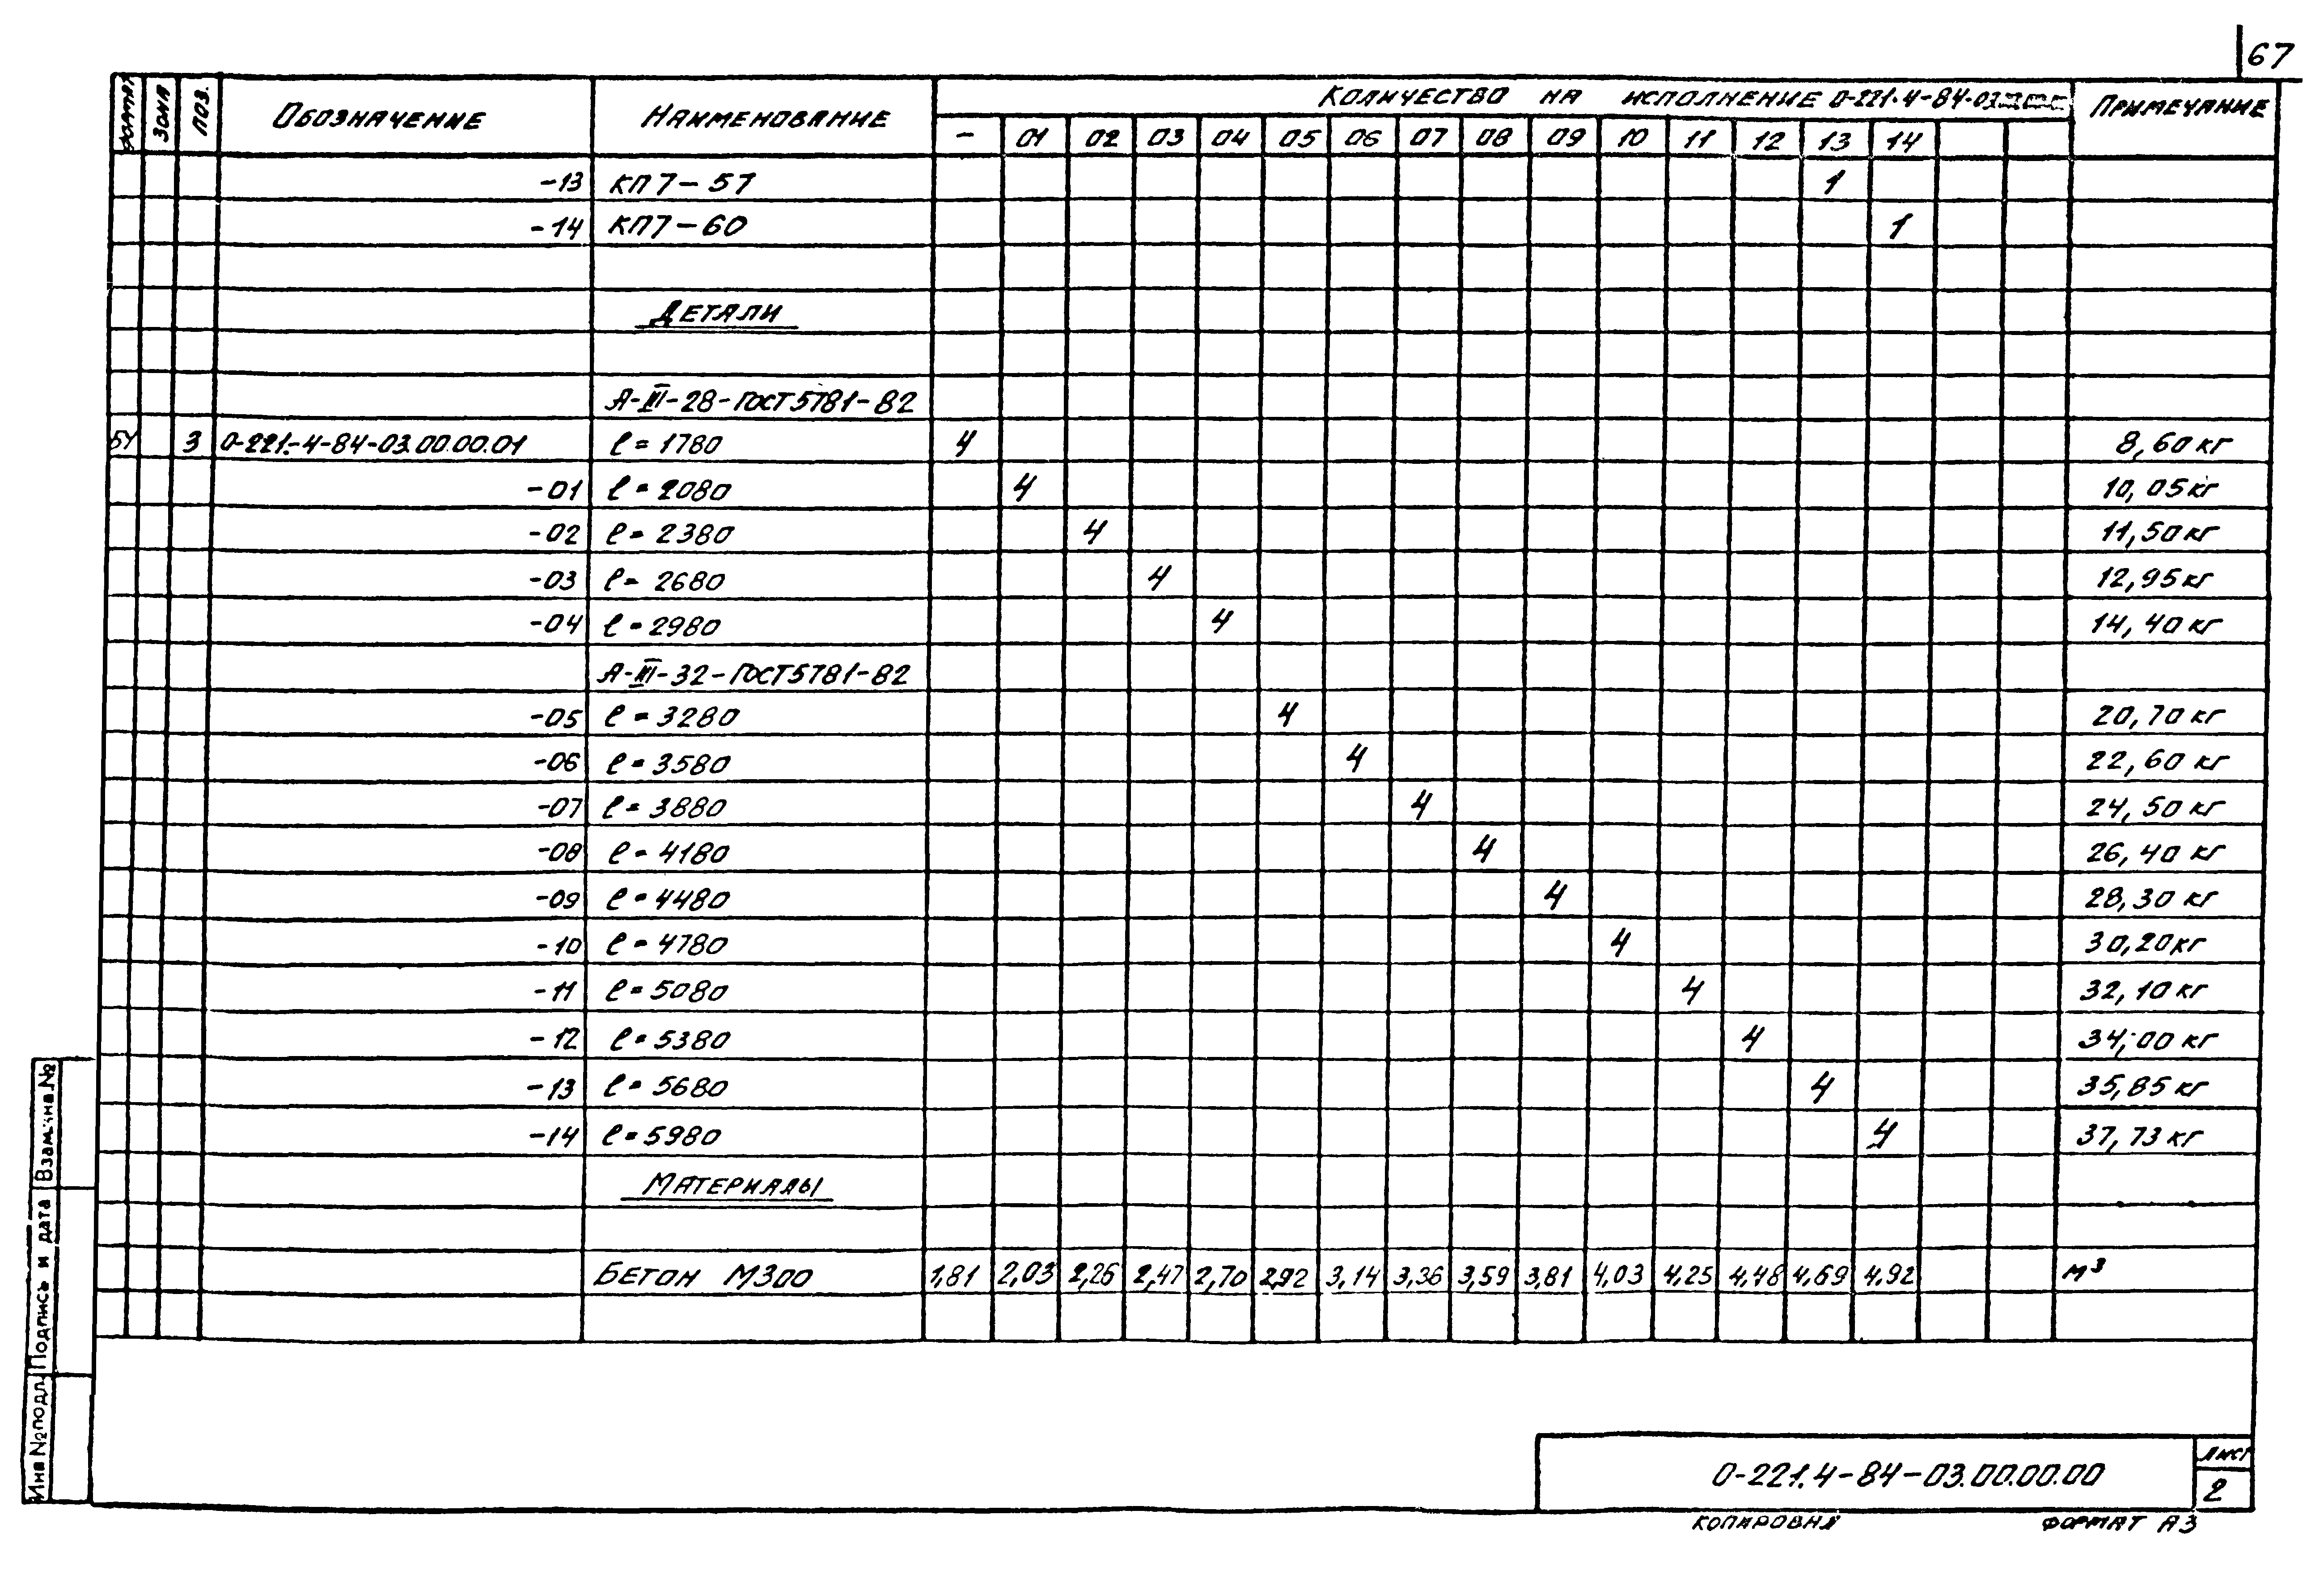 67
ФОРМАТ ЗОНА ПОЗ. ОБОЗНАЧЕНИЕ НАИМЕНОВАНИЕ КОЛИЧЕСТВО НА ИСПОЛНЕНИЕ 0-221.4-84-03 ПРИМЕЧАНИЕ
– 01 02 03 04 05 06 07 08 09 10 11 12 13 14
-13 КП7-57 1
-14 КП7-60 1
ДЕТАЛИ
А-III-28-ГОСТ5781-82
БЧ 3 0-221.-4-84-03.00.00.01 ℓ=1780 4 8,60кг
-01 ℓ=2080 4 10,05кг
-02 ℓ=2380 4 11,50кг
-03 ℓ=2680 4 12,95кг
-04 ℓ=2980 4 14,40кг
А-III-32-ГОСТ5781-82
-05 ℓ=3280 4 20,70кг
-06 ℓ=3580 4 22,60кг
-07 ℓ=3880 4 24,50кг
-08 ℓ=4180 4 26,40кг
-09 ℓ=4480 4 28,30кг
-10 ℓ=4780 4 30,20кг
-11 ℓ=5080 4 32,10кг
-12 ℓ=5380 4 34,00кг
-13 ℓ=5680 4 35,85кг
-14 ℓ=5980 4 37,73кг
МАТЕРИАЛЫ
БЕТОН М300 1,81 2,03 2,26 2,47 2,70 2,92 3,14 3,36 3,59 3,81 4,03 4,25 4,48 4,69 4,92 м³
Взам.инв.№
Подпись и дата
Инв №подл.
0-221.4-84-03.00.00.00
ЛИСТ
2
КОПИРОВАЛ ФОРМАТ А3